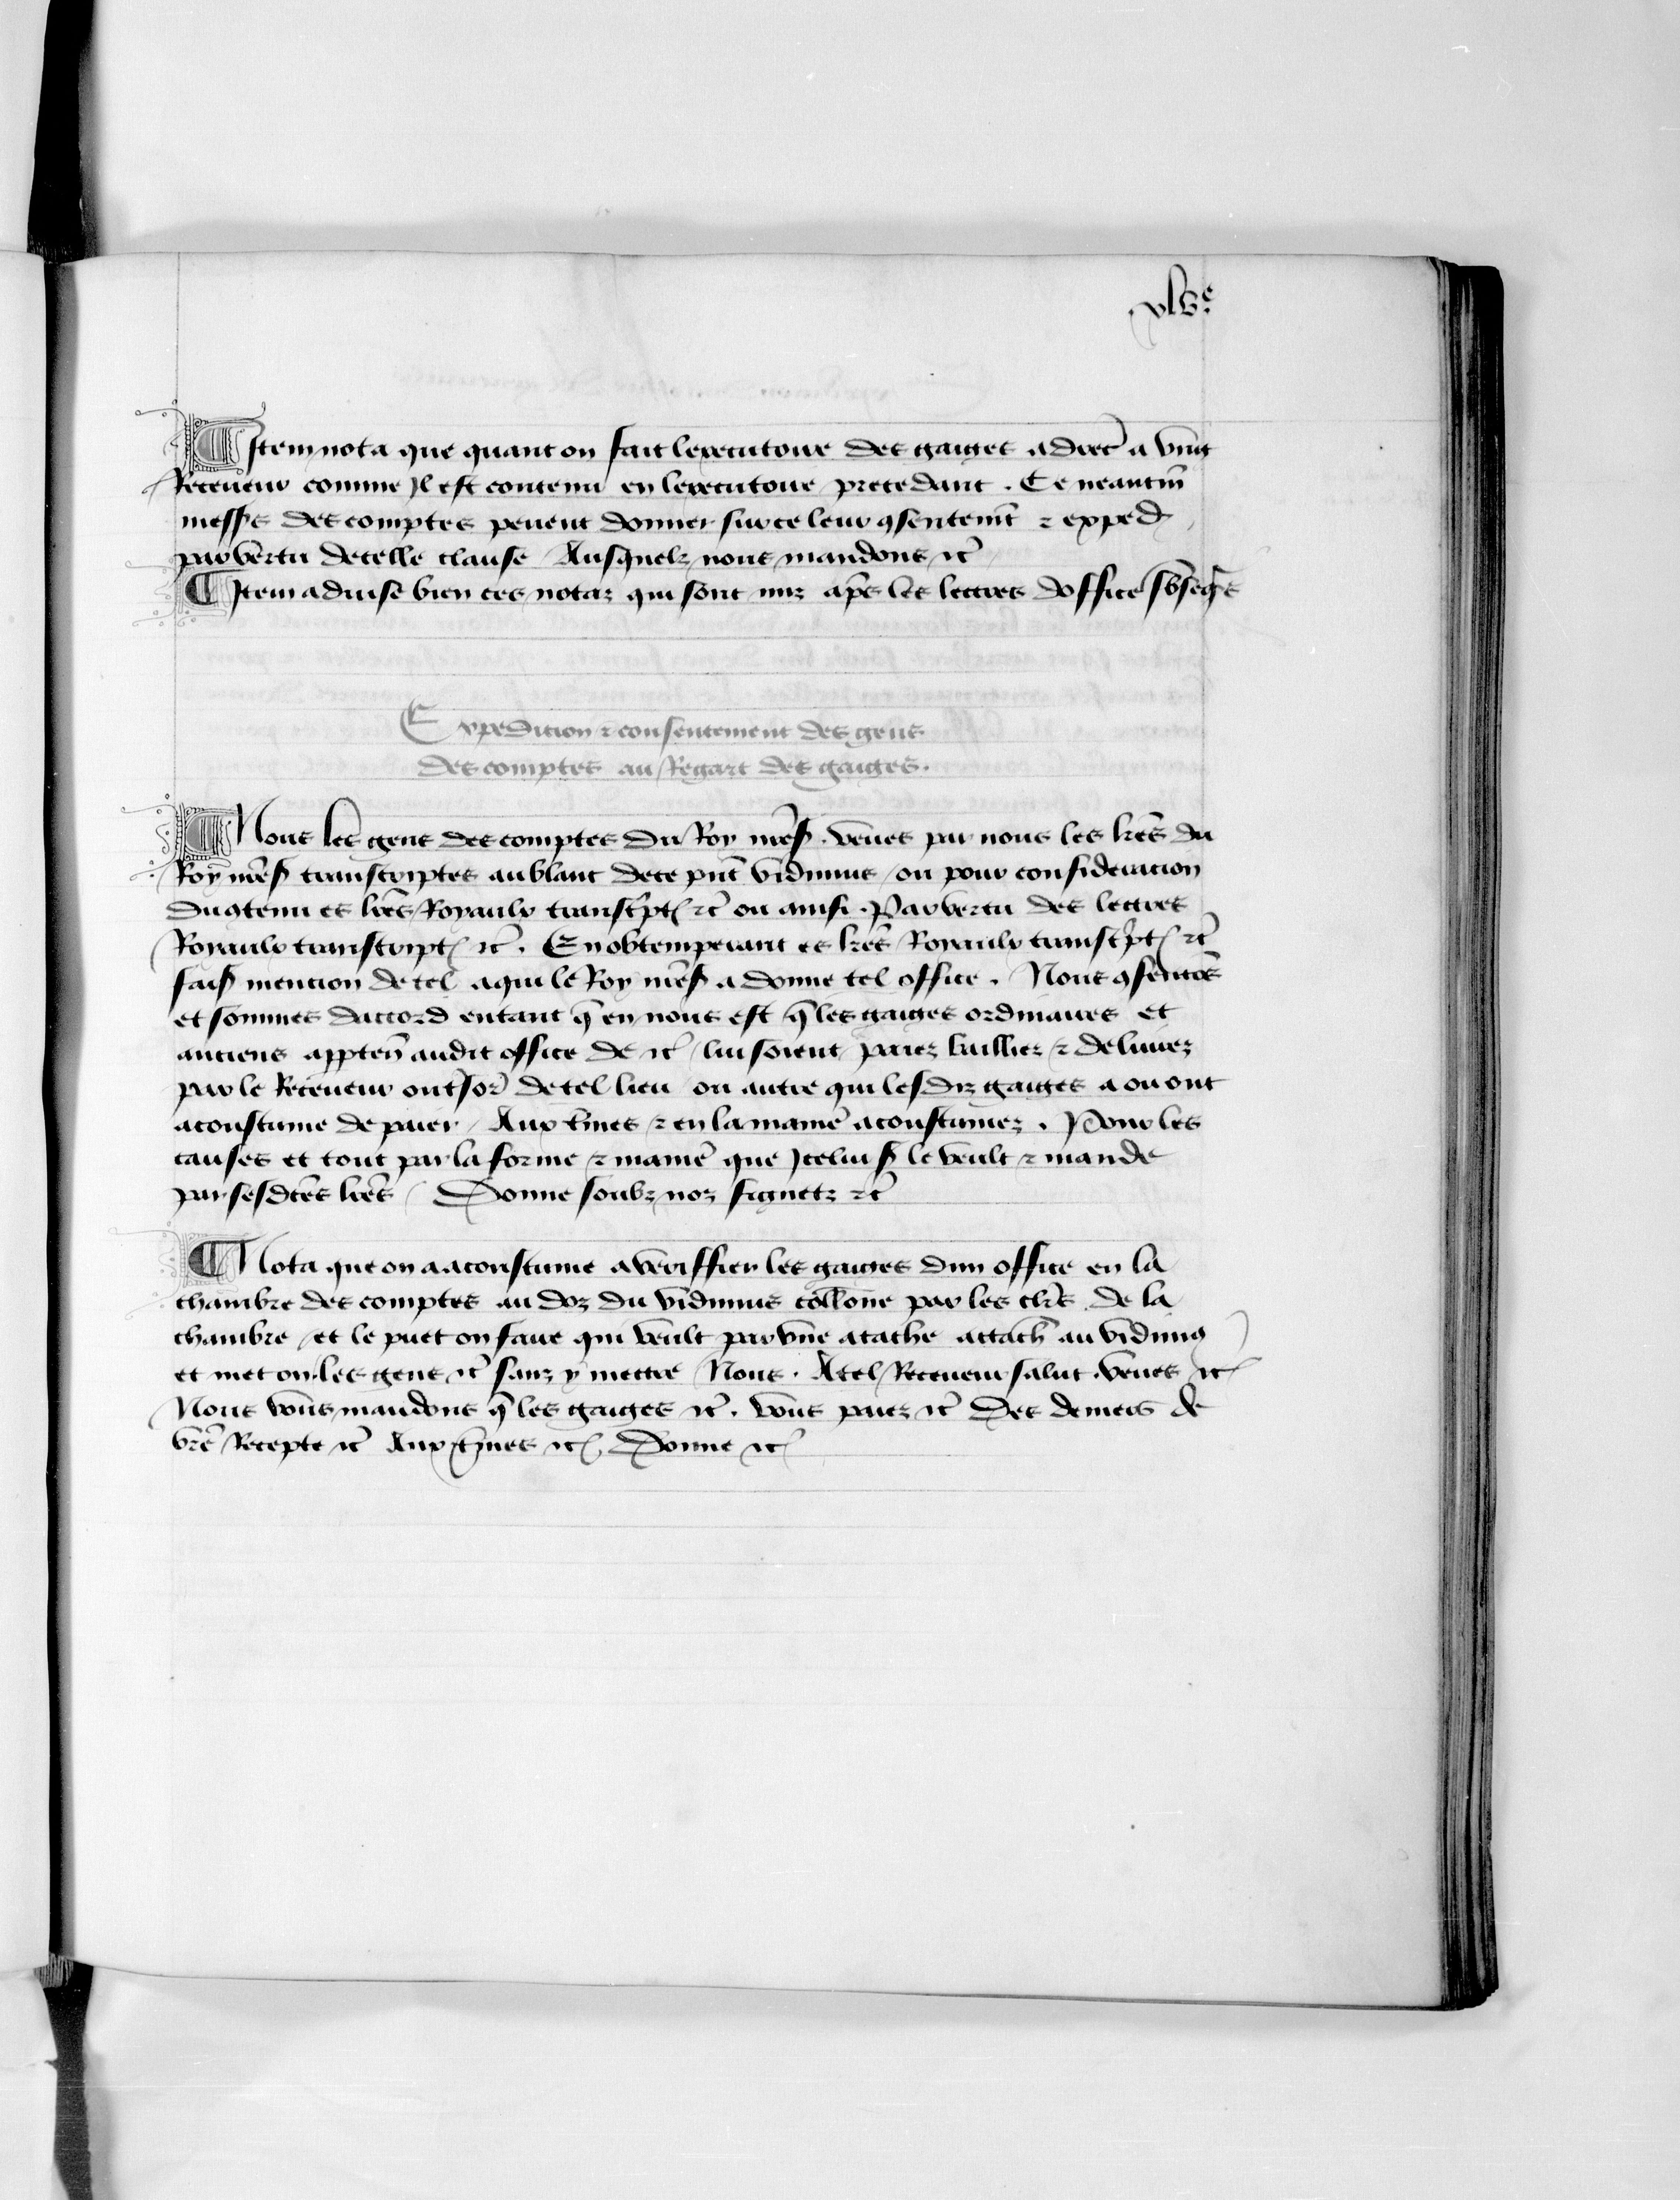 xlv.e
¶ Item nota que quant on fait lexecutoire des gaiges adrec̃ a vng
Receueur comme Il est contenu en lexecutoire precedant . Ce neantm̃
messrs des comptes peuent donner sur ce leur ꝯsentemt̃ ⁊ exped̃
par vertu de telle clause / Ausquelz nous mandons ⁊c̃
¶ Item aduise bien ces notaz qui sont miz aps̃ les lettres doffice sb̃seqr̃s
Expedicion ⁊ consentement des gens
des comptes au Regart des gaiges .
¶ Nous les gens des comptes du Roy nr̃es̃ . veues par nous les lrẽs du
Roy nr̃es̃ transcriptes au blanc de ce pñt vidimus / ou pour consideracion
du ꝯtenu es lrẽs Royaulx transcp̃t ⁊c̃ ou ainsi . Par vertu des lettres
Royaulx transcript ⁊c̃ . En obtemperant es lrẽs Royaulx transcp̃t ⁊c̃
fais̃ mencion de tel a qui le Roy nr̃es̃ a donne tel office . Nous ꝯsentõs
et sommes daccord en tant q̃ en nous est q̃ les gaiges ordinaires et
anciens apptẽn audit office de ⁊c̃ / lui soient paiez bailliez ⁊ deliurez
par le Receueur ou tsor̃ de tel lieu ou autre qui lesdiz gaiges a ou ont
acoustume de paier / Aux t̃mes ⁊ en la manier̃ acoustumez . Pour les
causes et tout par la forme ⁊ manier̃ que Icelui s̃ le veult ⁊ mande
par sesdctẽs lrẽs / Donne soubz noz signetz ⁊c̃
¶ Nota que on a acoustume a veriffier les gaiges dun office en la
chambre des comptes au doz du vidimus coll̃one par les clrs̃ de la
chambre / et le puet on faire qui veult par vne atache attach̃ au vidimus
et met on les gens ⁊c̃ sanz y mettre Nous . A tel Receueur salut . veues ⁊c̃
Nous voũs mandons q̃ les gaiges ⁊c̃ . voũs paiez ⁊c̃ Des deniers de
vrẽ Recepte ⁊c̃ Aux t̃mes ⁊c̃ Donne ⁊c̃